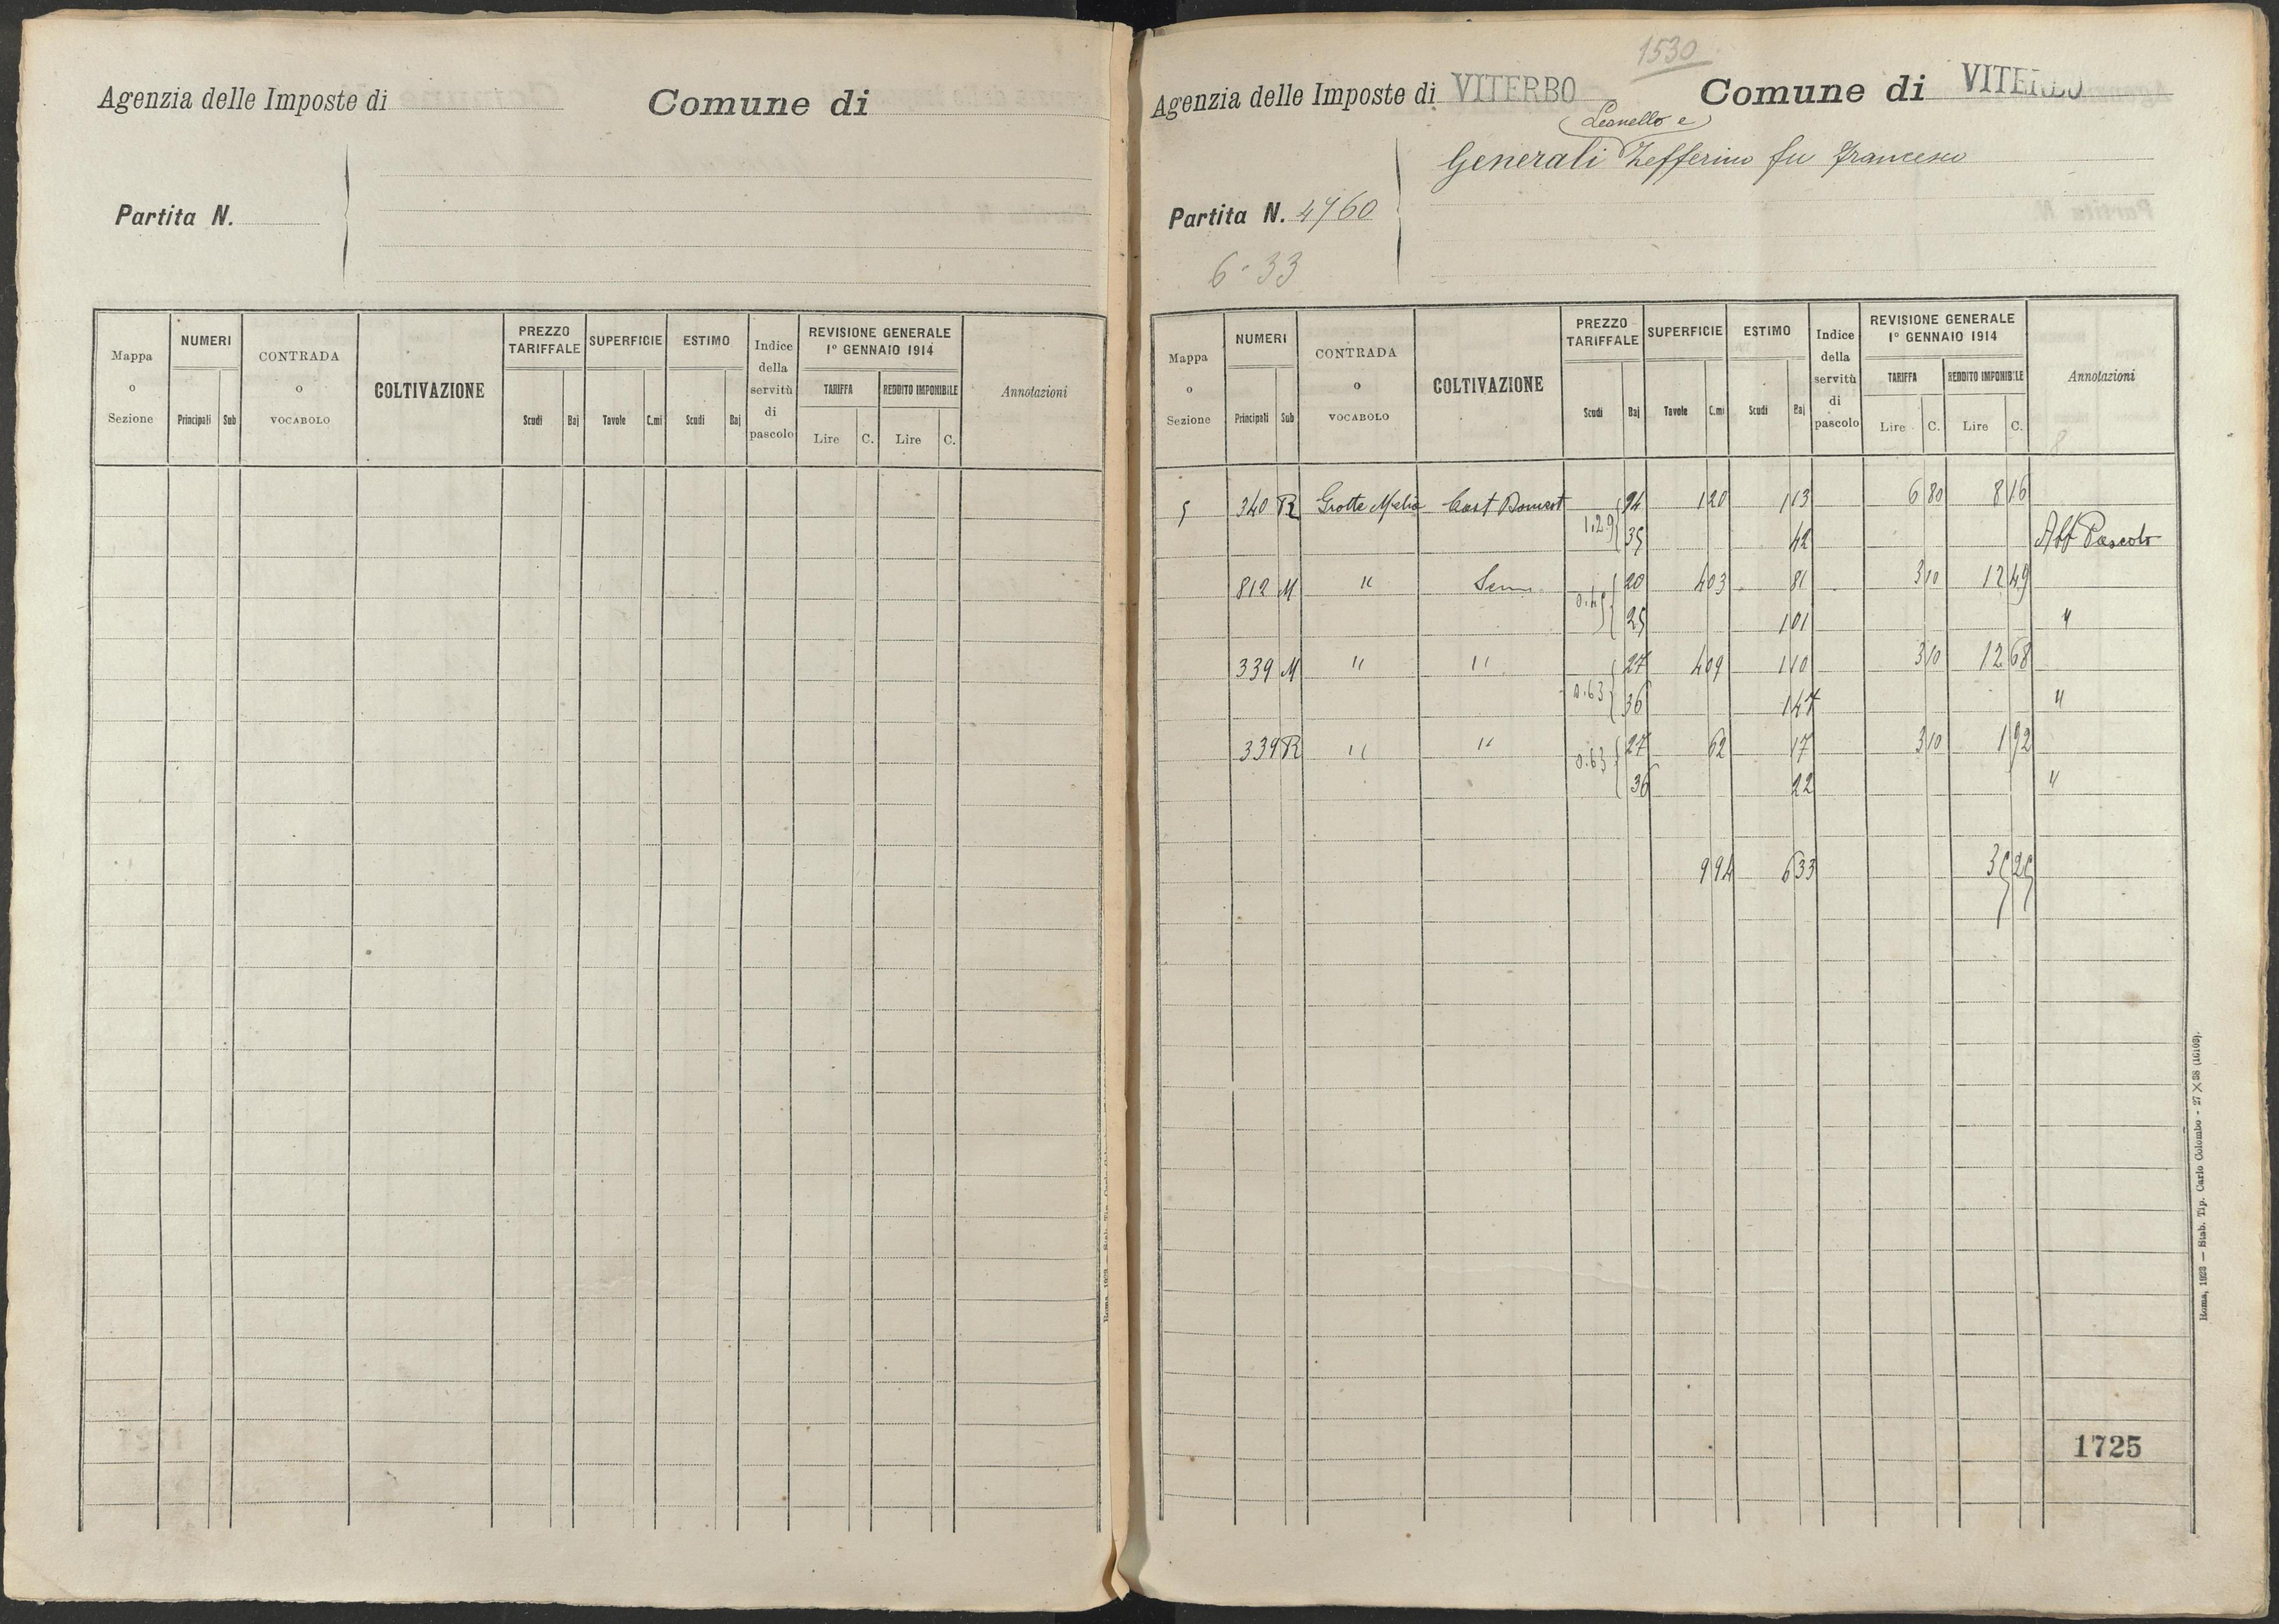 Agenzia delle Imposte di Comune di
Partita N.
Mappa o Sezione NUMERI CONTRADA o VOCABOLO COLTIVAZIONE PREZZO TARIFFALE SUPERFICIE ESTIMO Indice della servitù di pascolo REVISIONE GENERALE 1° GENNAIO 1914 Annotazioni
TARIFFA REDDITO IMPONIBILE
Principali Sub Scudi Baj Tavole C.mi Scudi Baj Lire C. Lire C.
1530
Agenzia delle Imposte di VITERBO Comune di VITERBO
Leonello e
Generali Zefferino fu Francesco
Partita N. 4760
6-33
Mappa o Sezione NUMERI CONTRADA o VOCABOLO COLTIVAZIONE PREZZO TARIFFALE SUPERFICIE ESTIMO Indice della servitù di pascolo REVISIONE GENERALE 1° GENNAIO 1914 Annotazioni
TARIFFA REDDITO IMPONIBILE
Principali Sub Scudi Baj Tavole C.mi Scudi Baj Lire C. Lire C.
8
5 340 R Grotte Cast Domest 94 1 20 1 13 6 80 8 16
1.29 35 42 Aff Pascolo
812 M " Sem. 20 4 03 81 3 10 12 49
0.45 25 1 01 "
339 M " " 27 4 09 1 10 3 10 12 68
0.63 36 1 47 "
339 R " " 27 62 17 3 10 1 92
0.63 36 22 "
9 94 6 33 35 25
1725
Roma, 1923 — Stab. Tip. Carlo Colombo - 27 X 38 (10103).